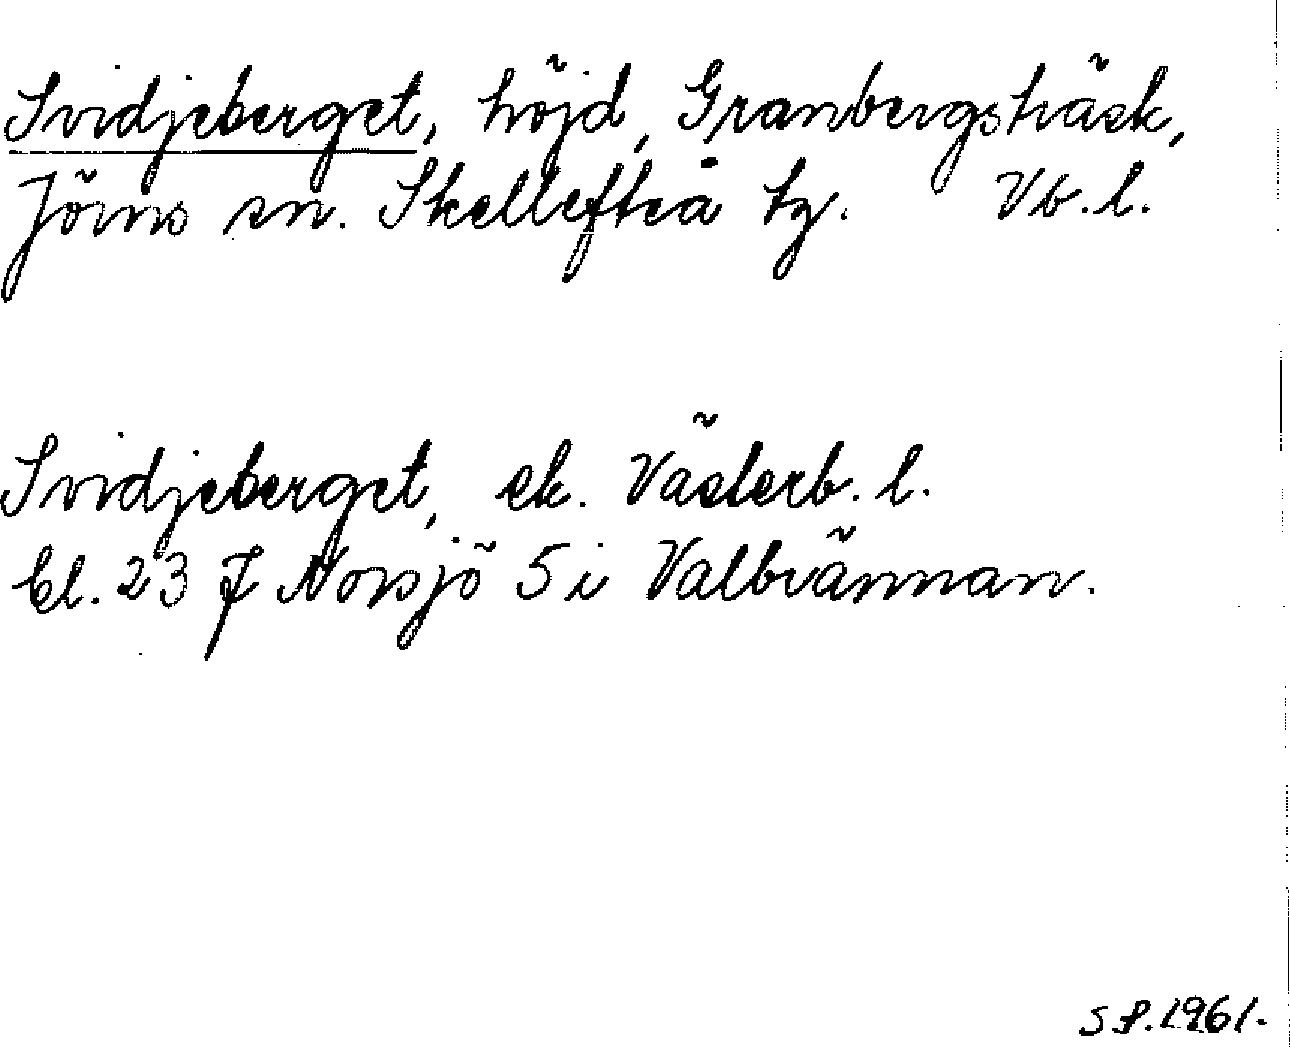 Svidjeberget, höjd, Granbergsträsk,
Jörns sn. Skellefteå tg. Vb. l.
Svidjeberget, ek. Västerb. l.
bl. 23 J Norsjö 5 i Valbrännan.
S P. 1961.